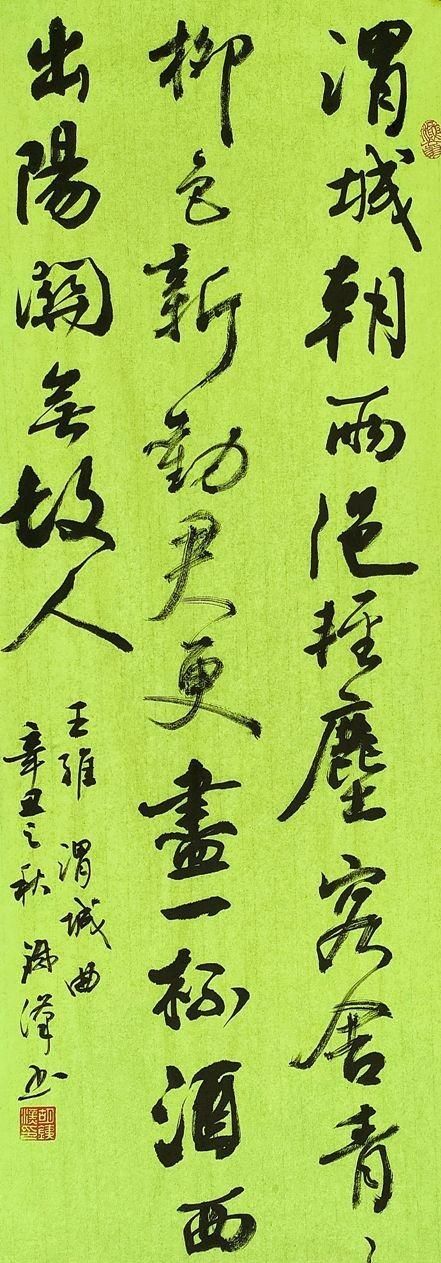 渭城朝雨浥輕塵客舍青々
柳色新勸君更盡一杯酒西
出陽關無故人
王維 渭城曲
辛丑之秋 漢书